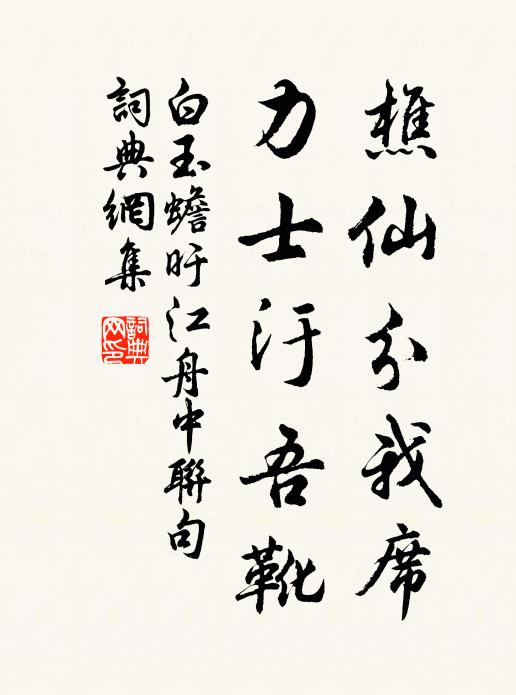 樵仙分我席
力士汙吾靴
白玉蟾旴江舟中聯句
詞典網集
詞典网印